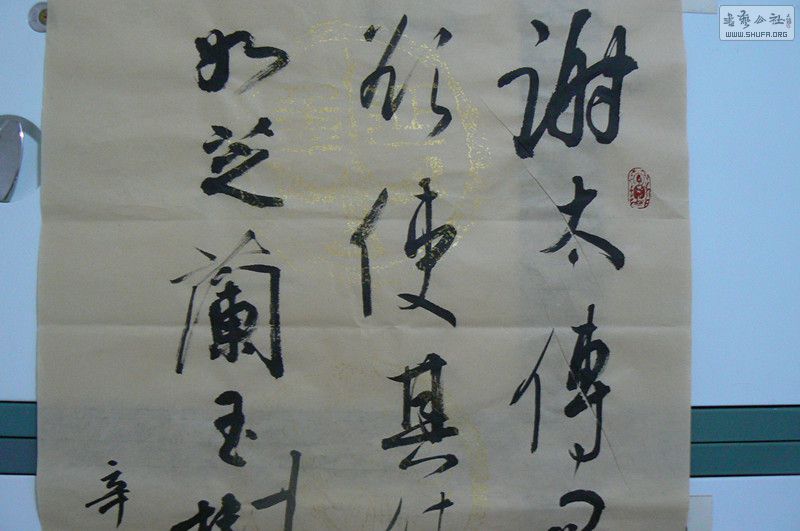 謝太傅
欲使其
如芝蘭玉樹
辛
書藝公社
WWW.SHUFA.ORG